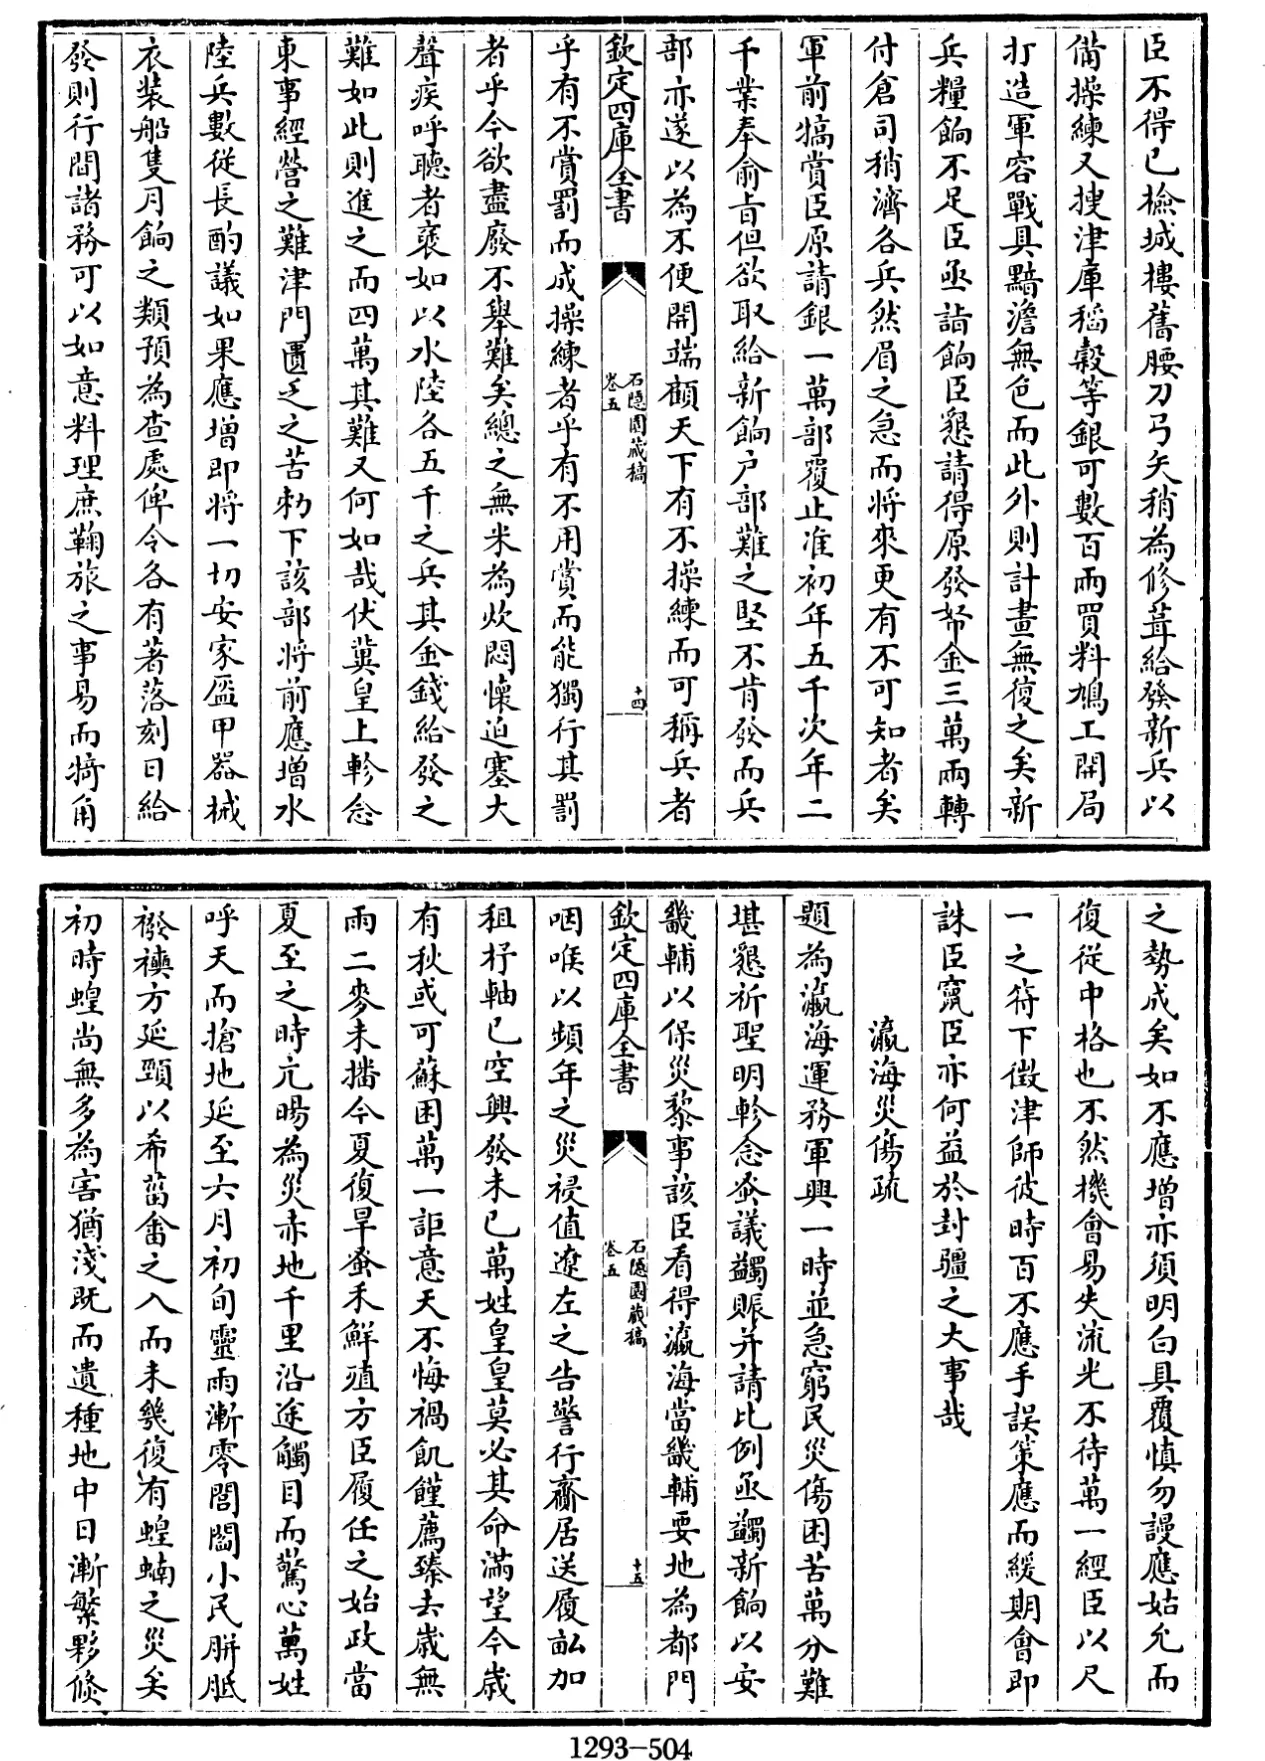 臣不得已檢城樓舊腰刀弓矢稍為修葺給發新兵以
備操練又搜津庫稻穀等銀可數百兩買料鳩工開局
打造軍容戰具黯澹無色而此外則計畫無復之矣新
兵糧餉不足臣亟詣餉臣懇請得原發帑金三萬兩轉
付倉司稍濟各兵然眉之急而將來更有不可知者矣
軍前犒賞臣原請銀一萬部覆止准初年五千次年二
千業奉俞旨但欲取給新餉户部難之堅不肯發而兵
部亦遂以為不便開端顧天下有不操練而可稱兵者
欽定四庫全書
石隱園藏稿
卷五
十四
乎有不賞罰而成操練者乎有不用賞而能獨行其罰
者乎今欲盡廢不舉難矣總之無米為炊悶懷迫塞大
聲疾呼聽者褎如以水陸各五千之兵其金錢給發之
難如此則進之而四萬其難又何如哉伏冀皇上軫念
東事經營之難津門匱乏之苦勑下該部將前應增水
陸兵數從長酌議如果應增即將一切安家盔甲器械
衣裝船隻月餉之類預為查處俾令各有著落刻日給
發則行間諸務可以如意料理庶鞠旅之事易而犄角
之勢成矣如不應增亦須明白具覆慎勿謾應姑允而
復從中格也不然機會易失流光不待萬一經臣以尺
一之符下徵津師彼時百不應手誤策應而緩期會即
誅臣竄臣亦何益於封疆之大事哉
瀛海災傷疏
題為瀛海運務軍興一時並急窮民災傷困苦萬分難
堪懇祈聖明軫念亟議蠲賑并請比例亟蠲新餉以安
畿輔以保災黎事該臣看得瀛海當畿輔要地為都門
欽定四庫全書
石隱園藏稿
卷五
十五
咽喉以頻年之災祲值遼左之告警行齎居送履畝加
租杼軸已空興發未已萬姓皇皇莫必其命滿望今歲
有秋或可蘇困萬一詎意天不悔禍飢饉薦臻去歲無
雨二麥未播今夏復旱蚤禾鮮殖方臣履任之始政當
夏至之時亢暘為災赤地千里沿途觸目而驚心萬姓
呼天而搶地延至六月初旬靈雨漸零閭閻小民胼胝
襏襫方延頸以希菑畬之入而未幾復有蝗蝻之災矣
初時蝗尚無多為害猶淺既而遺種地中日漸繁夥倐
1293-504